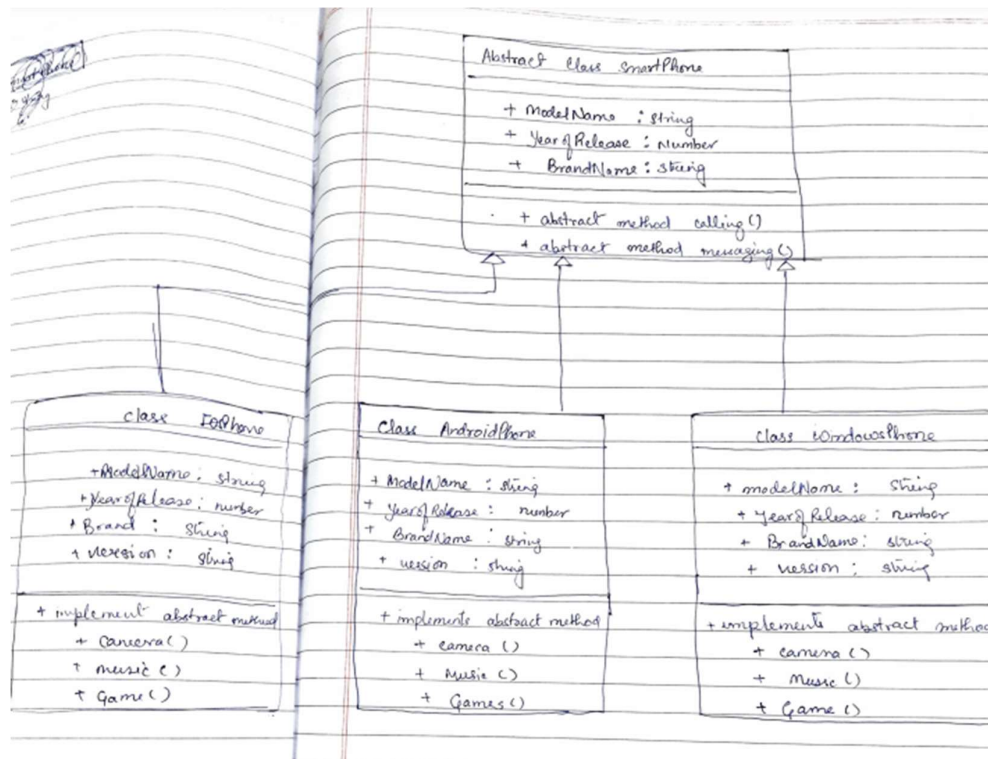 Abstract Class SmartPhone
+ ModelName : string
+ YearofRelease : Number
+ BrandName : string
+ abstract method calling()
+ abstract method messaging()
class IOSPhone
+ModelName : string
+YearofRelease : number
+ Brand : string
+ version : string
+ implement abstract method
+ Camera()
+ music()
+ Game()
Class AndroidPhone
+ ModelName : string
+ YearofRelease : number
+ BrandName : string
+ version : string
+ implements abstract method
+ camera()
+ Music()
+ Games()
class WindowsPhone
+ modelName : string
+ YearofRelease : number
+ BrandName : string
+ version : string
+ implements abstract method
+ camera()
+ Music()
+ Game()